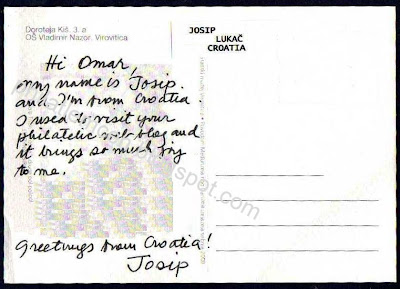 Dorotaja Kiš, 3. a
OŠ Vladimir Nazor, Virovitica
Hi Omar,
my name is Josip.
and I'm from Croatia.
I used to visit your
philatelic web blog and
it brings so much joy
to me.
Greetings from Croatia!
Josip
JOSIP
LUKAČ
CROATIA